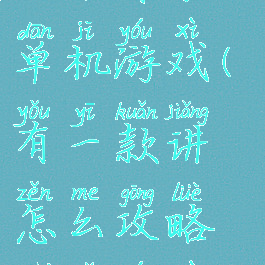 dān jī yóu xì
单机游戏(
yǒu yī kuǎn jiǎng
有一款讲
zěn me gōng lüè
怎么攻略